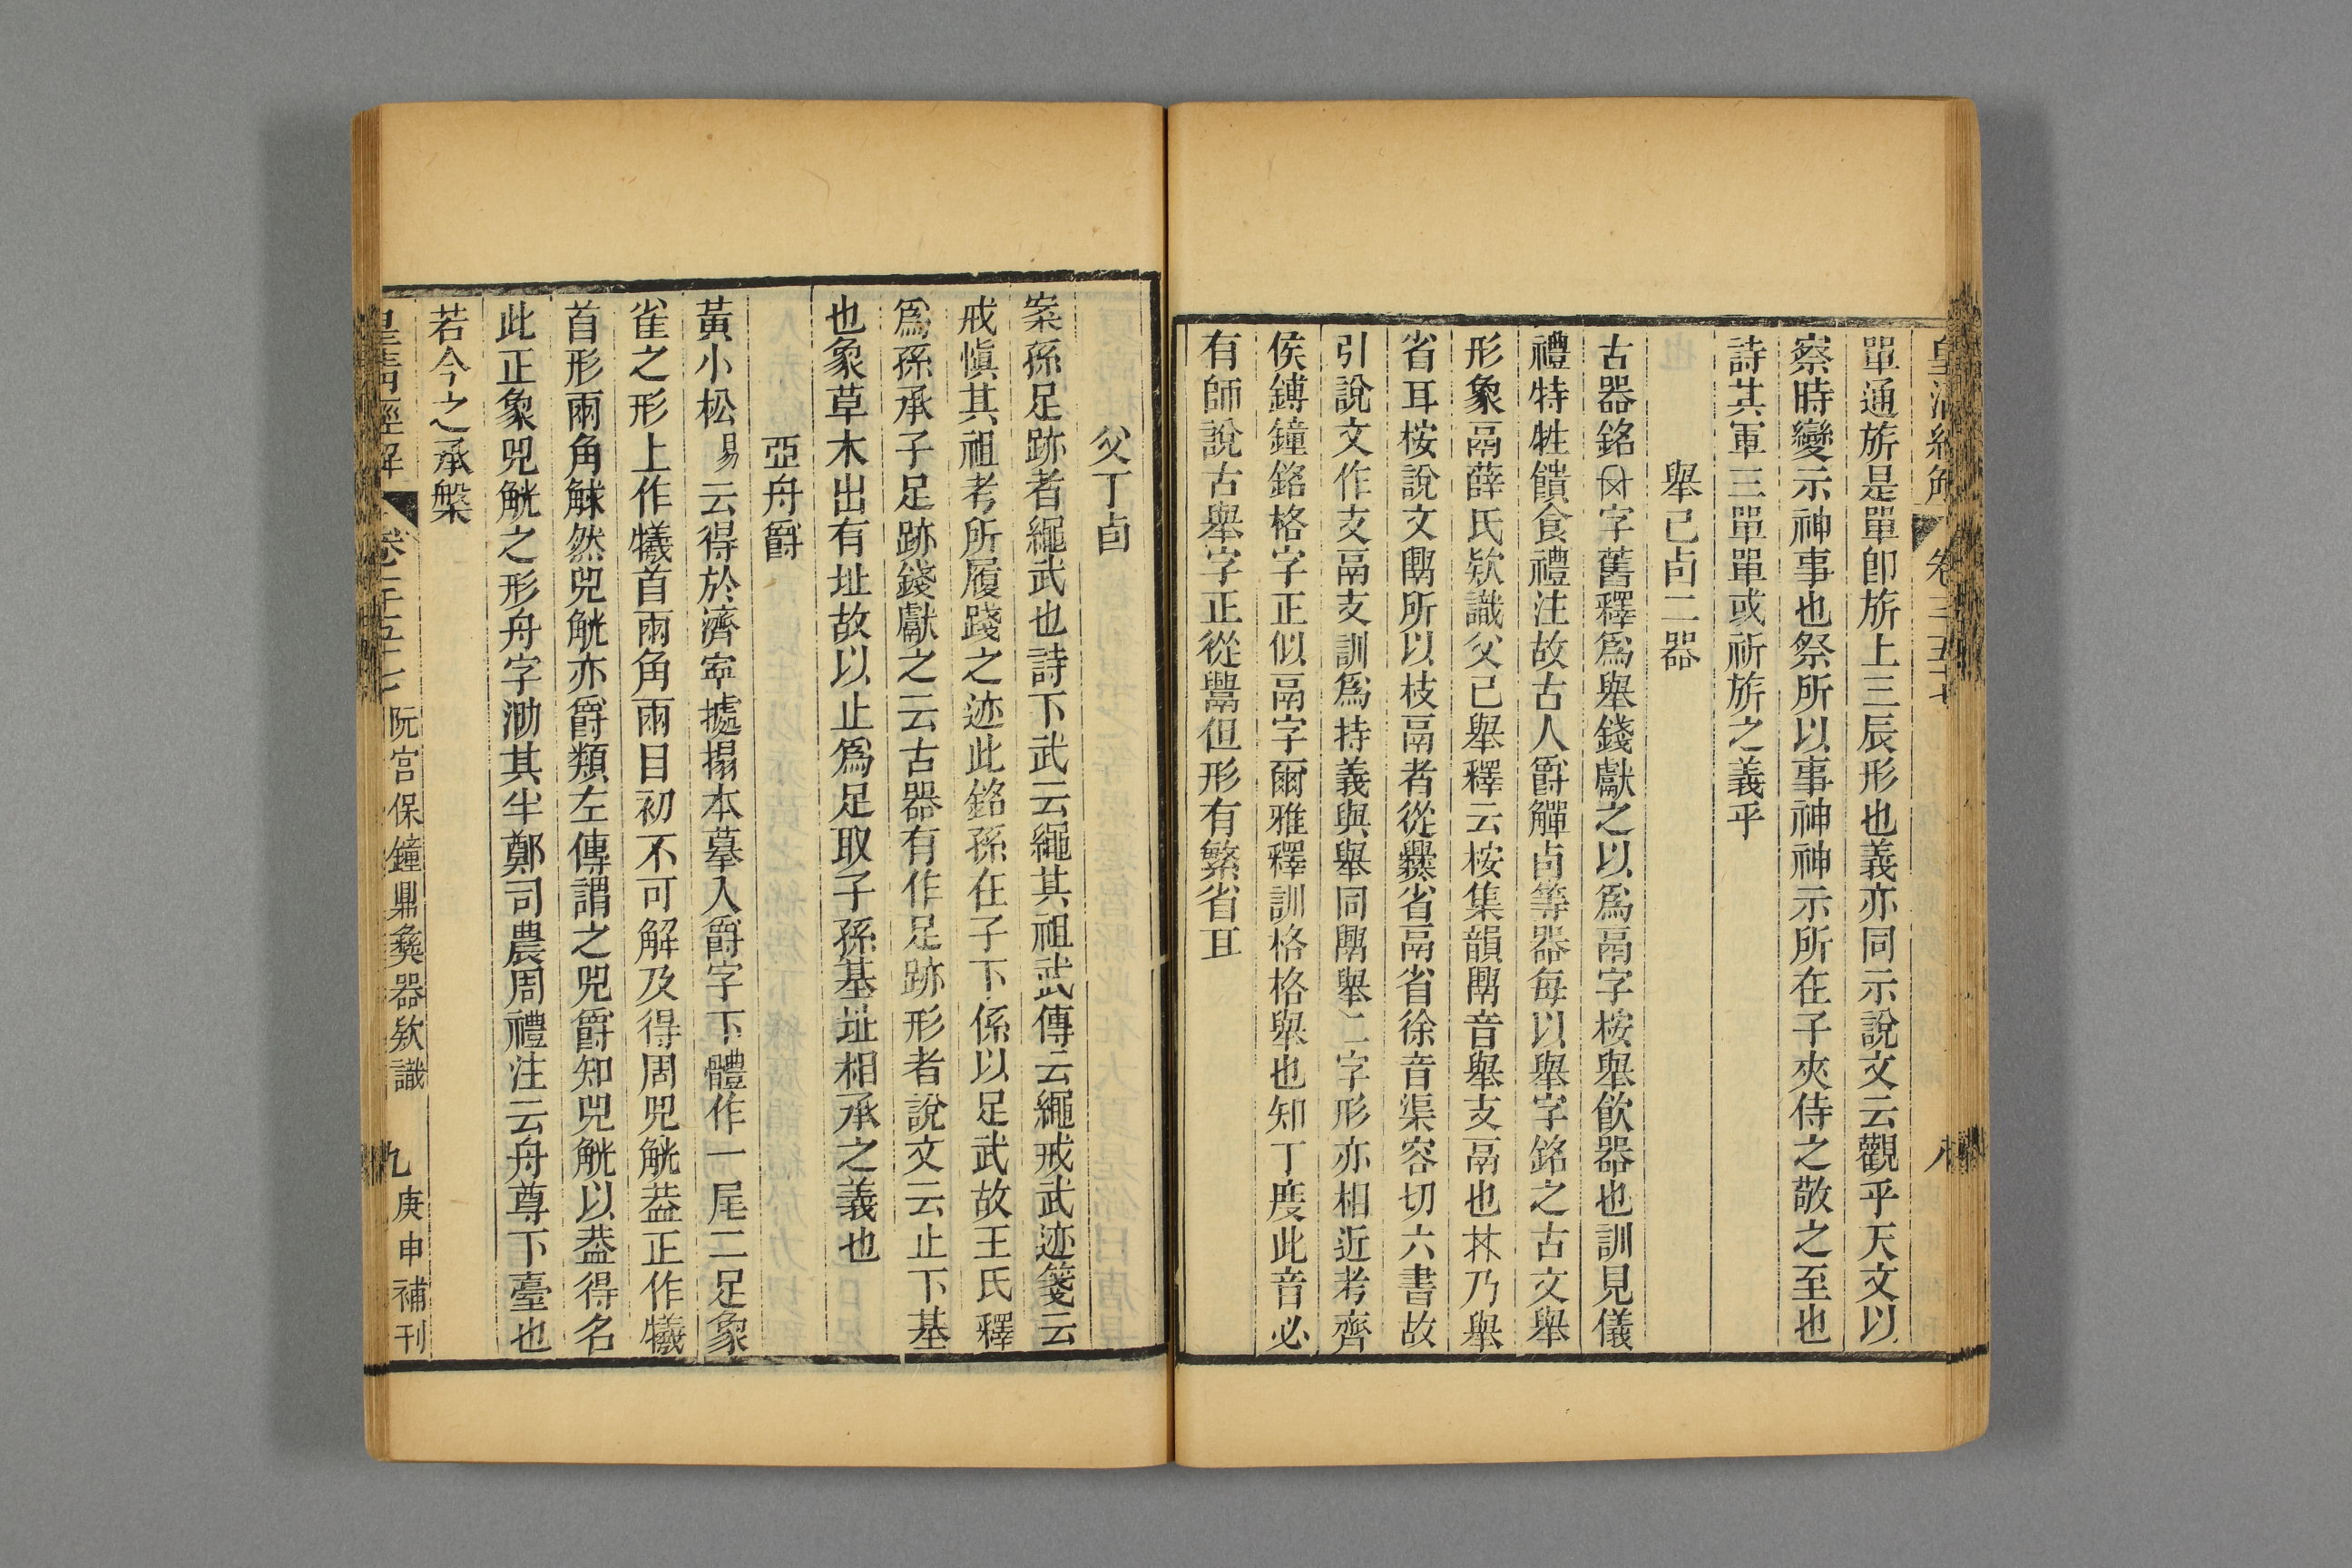 皇清經解 卷千五十七 八
單通旂是單卽旂上三辰形也義亦同示說文云觀乎天文以
察時變示神事也祭所以事神神示所在子夾侍之敬之至也
詩其軍三單單或祈旂之義乎
舉己卣二器
古器銘字舊釋爲舉錢獻之以爲鬲字桉舉飮器也訓見儀
禮特牲饋食禮注故古人爵觶卣等器每以舉字銘之古文舉
形象鬲薛氏欵識父己舉釋云桉集韻䰜音舉支鬲也乃舉
省耳桉說文䰜所以枝鬲者從爨省鬲省徐音渠容切六書故
引說文作支鬲支訓爲持義與舉同䰜舉二字形亦相近考齊
侯鎛鐘銘格字正似鬲字爾雅釋訓格格舉也知丁度此音必
有師說古舉字正從䰜但形有繁省耳
父丁卣
案孫足跡者繩武也詩下武云繩其祖武傳云繩戒武迹箋云
戒愼其祖考所履踐之迹此銘孫在子下係以足武故王氏釋
爲孫承子足跡錢獻之云古器有作足跡形者說文云止下基
也象草木出有址故以止爲足取子孫基址相承之義也
亞舟爵
黃小松易云得於濟寧據搨本摹入爵字下體作一尾二足象
雀之形上作犧首兩角兩目初不可解及得周兕觥葢正作犧
首形兩角觩然兕觥亦爵類左傳謂之兕爵知兕觥以葢得名
此正象兕觥之形舟字泐其半鄭司農周禮注云舟尊下臺也
若今之承槃
皇淸經解 卷千五十七 阮宮保鐘鼎彝器欵識 九 庚申補刊